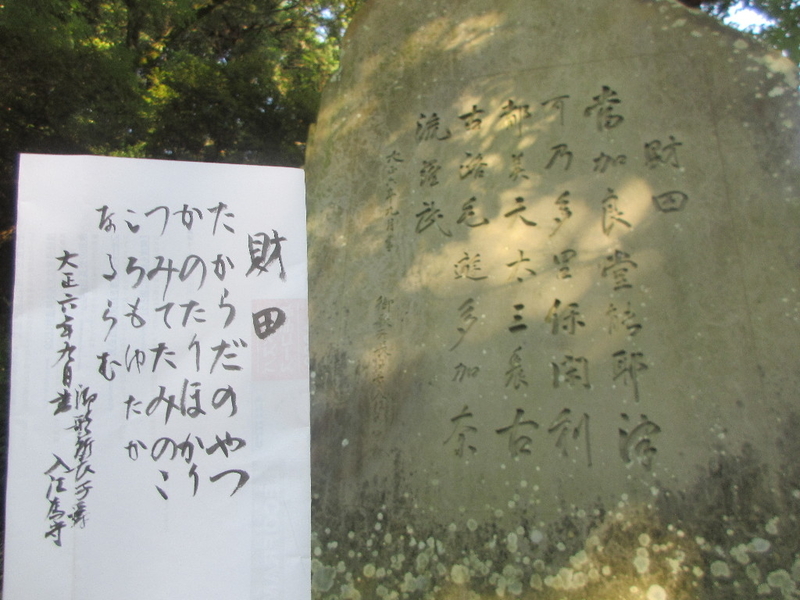 財田
當加良堂能耶津
可乃多里保閑利
都美天太三農古
古路毛遊多加奈
流羅武
財田
たからだのやつ
かのたりほかり
つみてたみのこ
ころもゆたか
なるらむ
大正六年九月書
入江為守